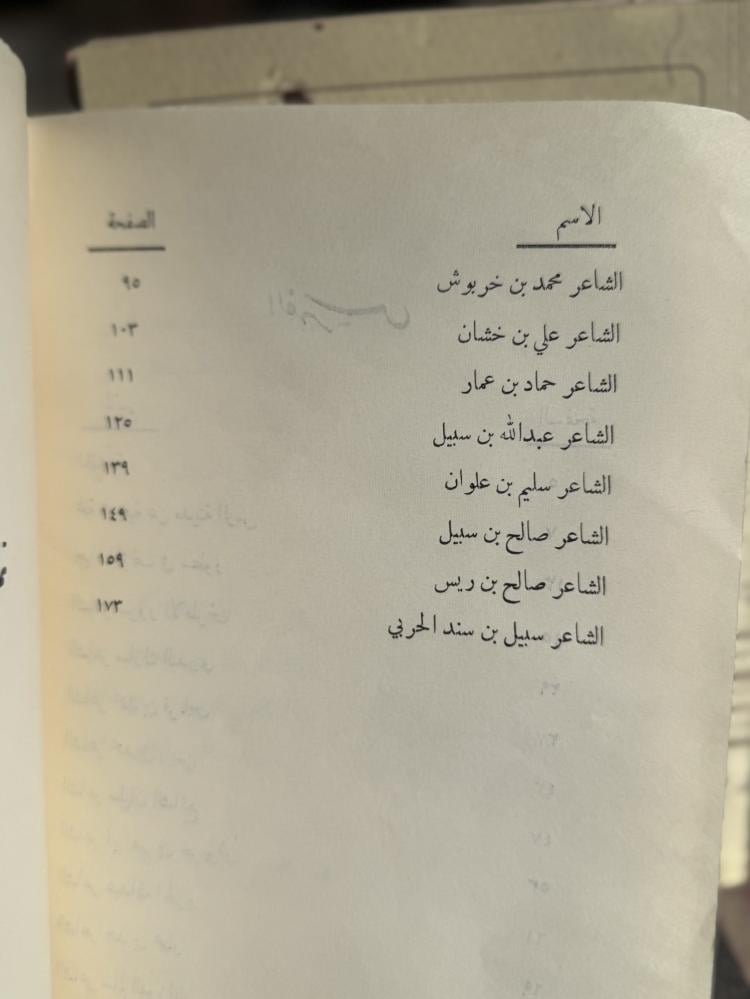 الاسم الصفحة
الشاعر محمد بن خربوش ٩٥
الشاعر علي بن خشان ١٠٣
الشاعر حماد بن عمار ١١١
الشاعر عبدالله بن سبيل ١٢٥
الشاعر سليم بن علوان ١٣٩
الشاعر صالح بن سبيل ١٤٩
الشاعر صالح بن ريس ١٥٩
الشاعر سبيل بن سند الحربي ١٧٣